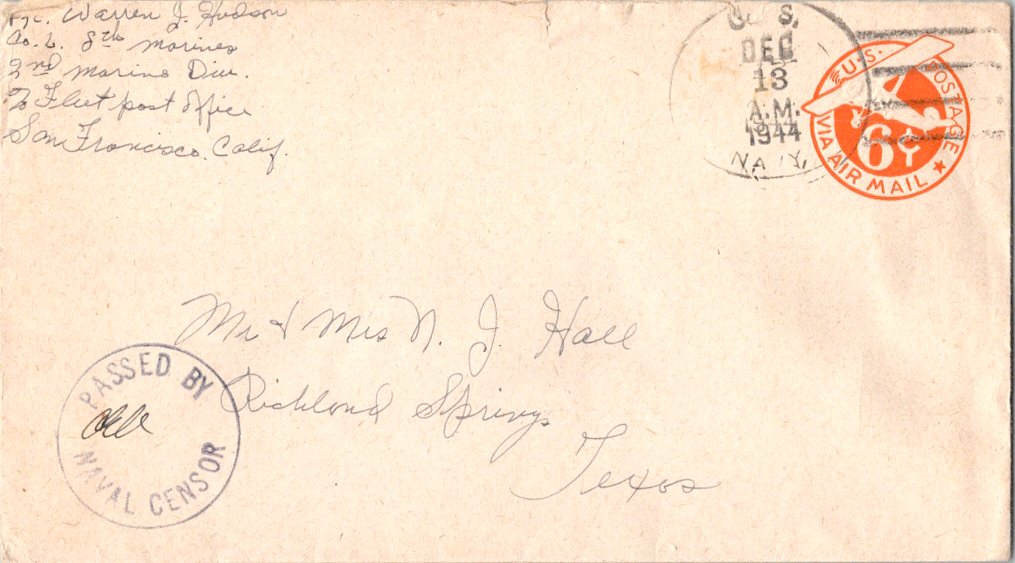 Pfc. Warren J. Hudson
Co. L. 8th Marines
2nd Marine Div.
℅ Fleet post office
San Francisco. Calif.
U. S.
DEC
13
A.M.
1944
NAVY
U.S. POSTAGE
6¢
VIA AIR MAIL
Mr & Mrs N. J. Hall
Richland Springs
Texas
PASSED BY
NAVAL CENSOR